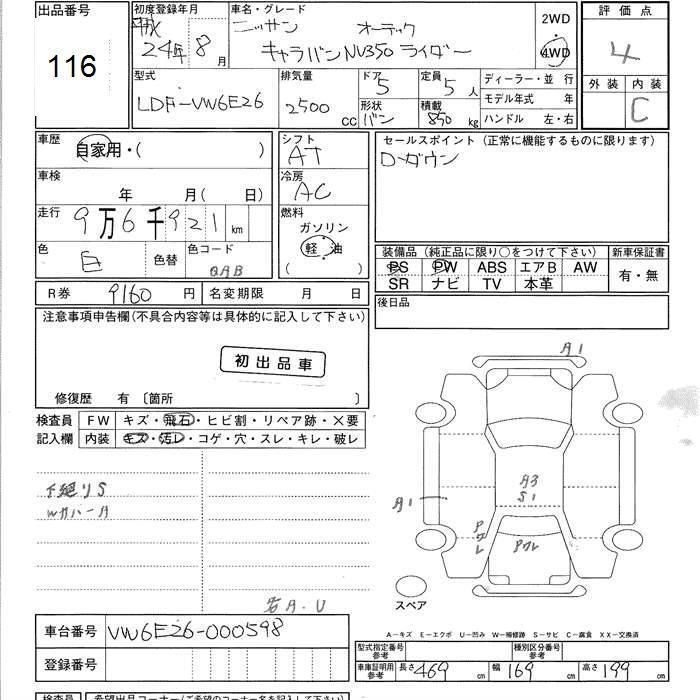 出品番号
116
初度登録年月
平成
24年8月
車名・グレード
ニッサン オーテック
キャラバンNV350 ライダー
2WD
4WD
評価点
4
外装 内装
C
型式
LDF-VW6E26
排気量
2500 cc
ドア
5
定員
5人
形状
バン
積載
850 kg
ディーラー・並 行
モデル年式 年
ハンドル 左・右
車歴
自家用・( )
シフト
AT
セールスポイント (正常に機能するものに限ります)
D-ダウン
車検
年 月(日)
冷房
AC
走行
9万6千921 km
燃料
ガソリン
軽 油
( )
色
白
色替
色コード
QAB
装備品 (純正品に限り○をつけて下さい)
新車保証書
PS PW ABS エアB AW
SR ナビ TV 本革
有・無
R券 9160 円
名変期限 月 日
後日品
注意事項申告欄(不具合内容等は具体的に記入して下さい)
初出品車
修復歴 有 〔箇所 〕
検査員
記入欄
FW キズ・飛石・ヒビ割・リペア跡・×要
内装 キズ・汚レ・コゲ・穴・スレ・キレ・破レ
下廻りS
A1
A1
A3
S1
ワレ
ワレ
スペア
A-キズ E-エクボ U-凹み W-補修跡 S-サビ C-腐食 XX-交換済
車台番号 VW6E26-000598
登録番号
型式指定番号
参考
種別区分番号
参考
車庫証明用
参考
長さ 469 cm
幅 169 cm
高さ 199 cm
検査員
希望出品コーナー(ご希望のコーナー名を記入下さい)